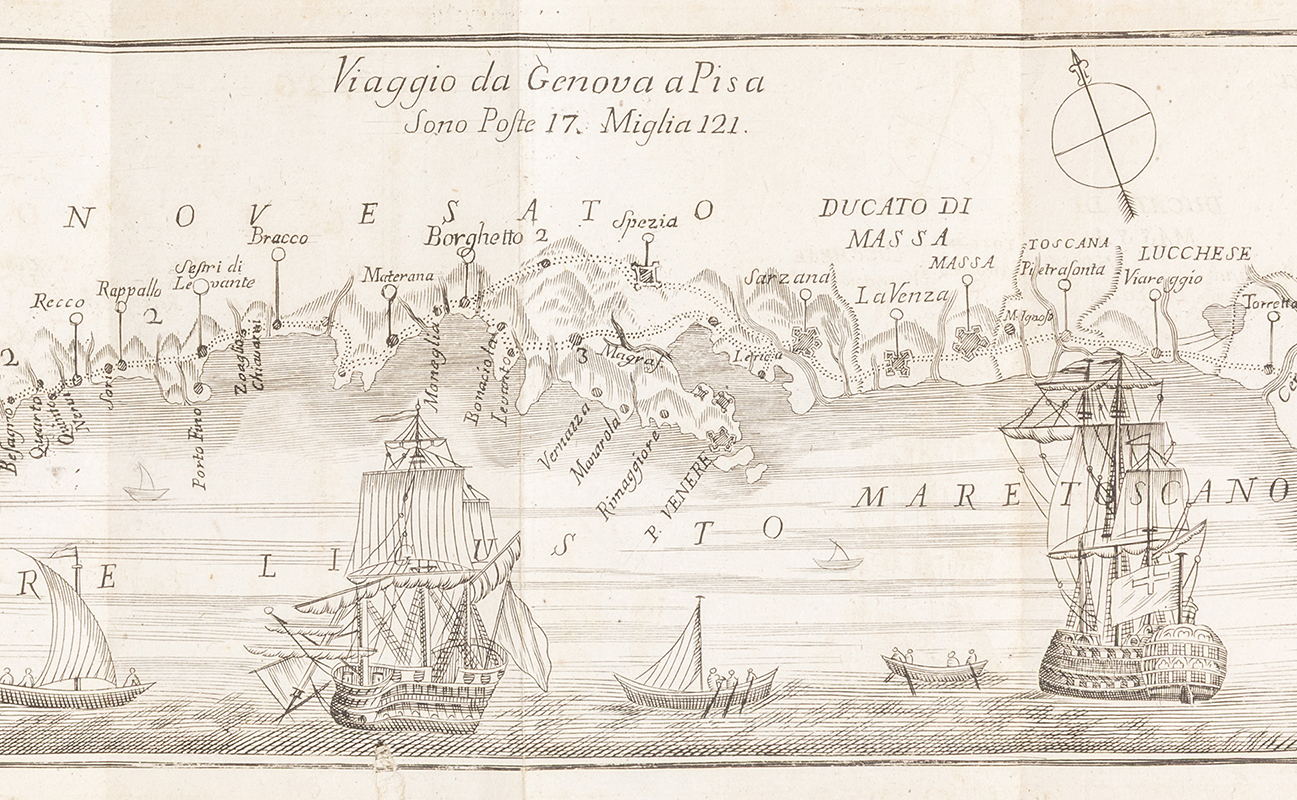 Viaggio da Genova a Pisa
Sono Poſte 17. Miglia 121.
N O V E S A T O
DUCATO DI
MASSA
Bracco
Borghetto 2
Spezia
TOSCANA
LUCCHESE
MASSA
Sestri di
Levante
Materana
Sarzana
Pietrasonta
Viareggio
Recco
Rappallo
2
La Venza
Torretta
M. Ignoso
2
3
Magra f.
Lerica
Besagno
Quarto
Quinto
Nervi
Sori
Porto Fino
Zoaglio
Chiavari
Monaglia
Bonaciola
Levanto
Vernazza
Manarola
Rimaggiore
P. VENERE
MARE TOSCANO
R E LIUSTO